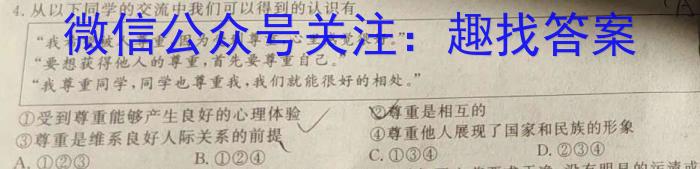 4. 从以下同学的交流中我们可以得到的认识有
微信公众号关注：趣找答案
“要想获得他人的尊重，首先要尊重自己。”
“我尊重同学，同学也尊重我，我们就能很好的相处。”
①受到尊重能够产生良好的心理体验 ②尊重是相互的
③尊重是维系良好人际关系的前提 ④尊重他人展现了国家和民族的形象
A. ①②③ B. ①②④ C. ①③④ D. ②③④